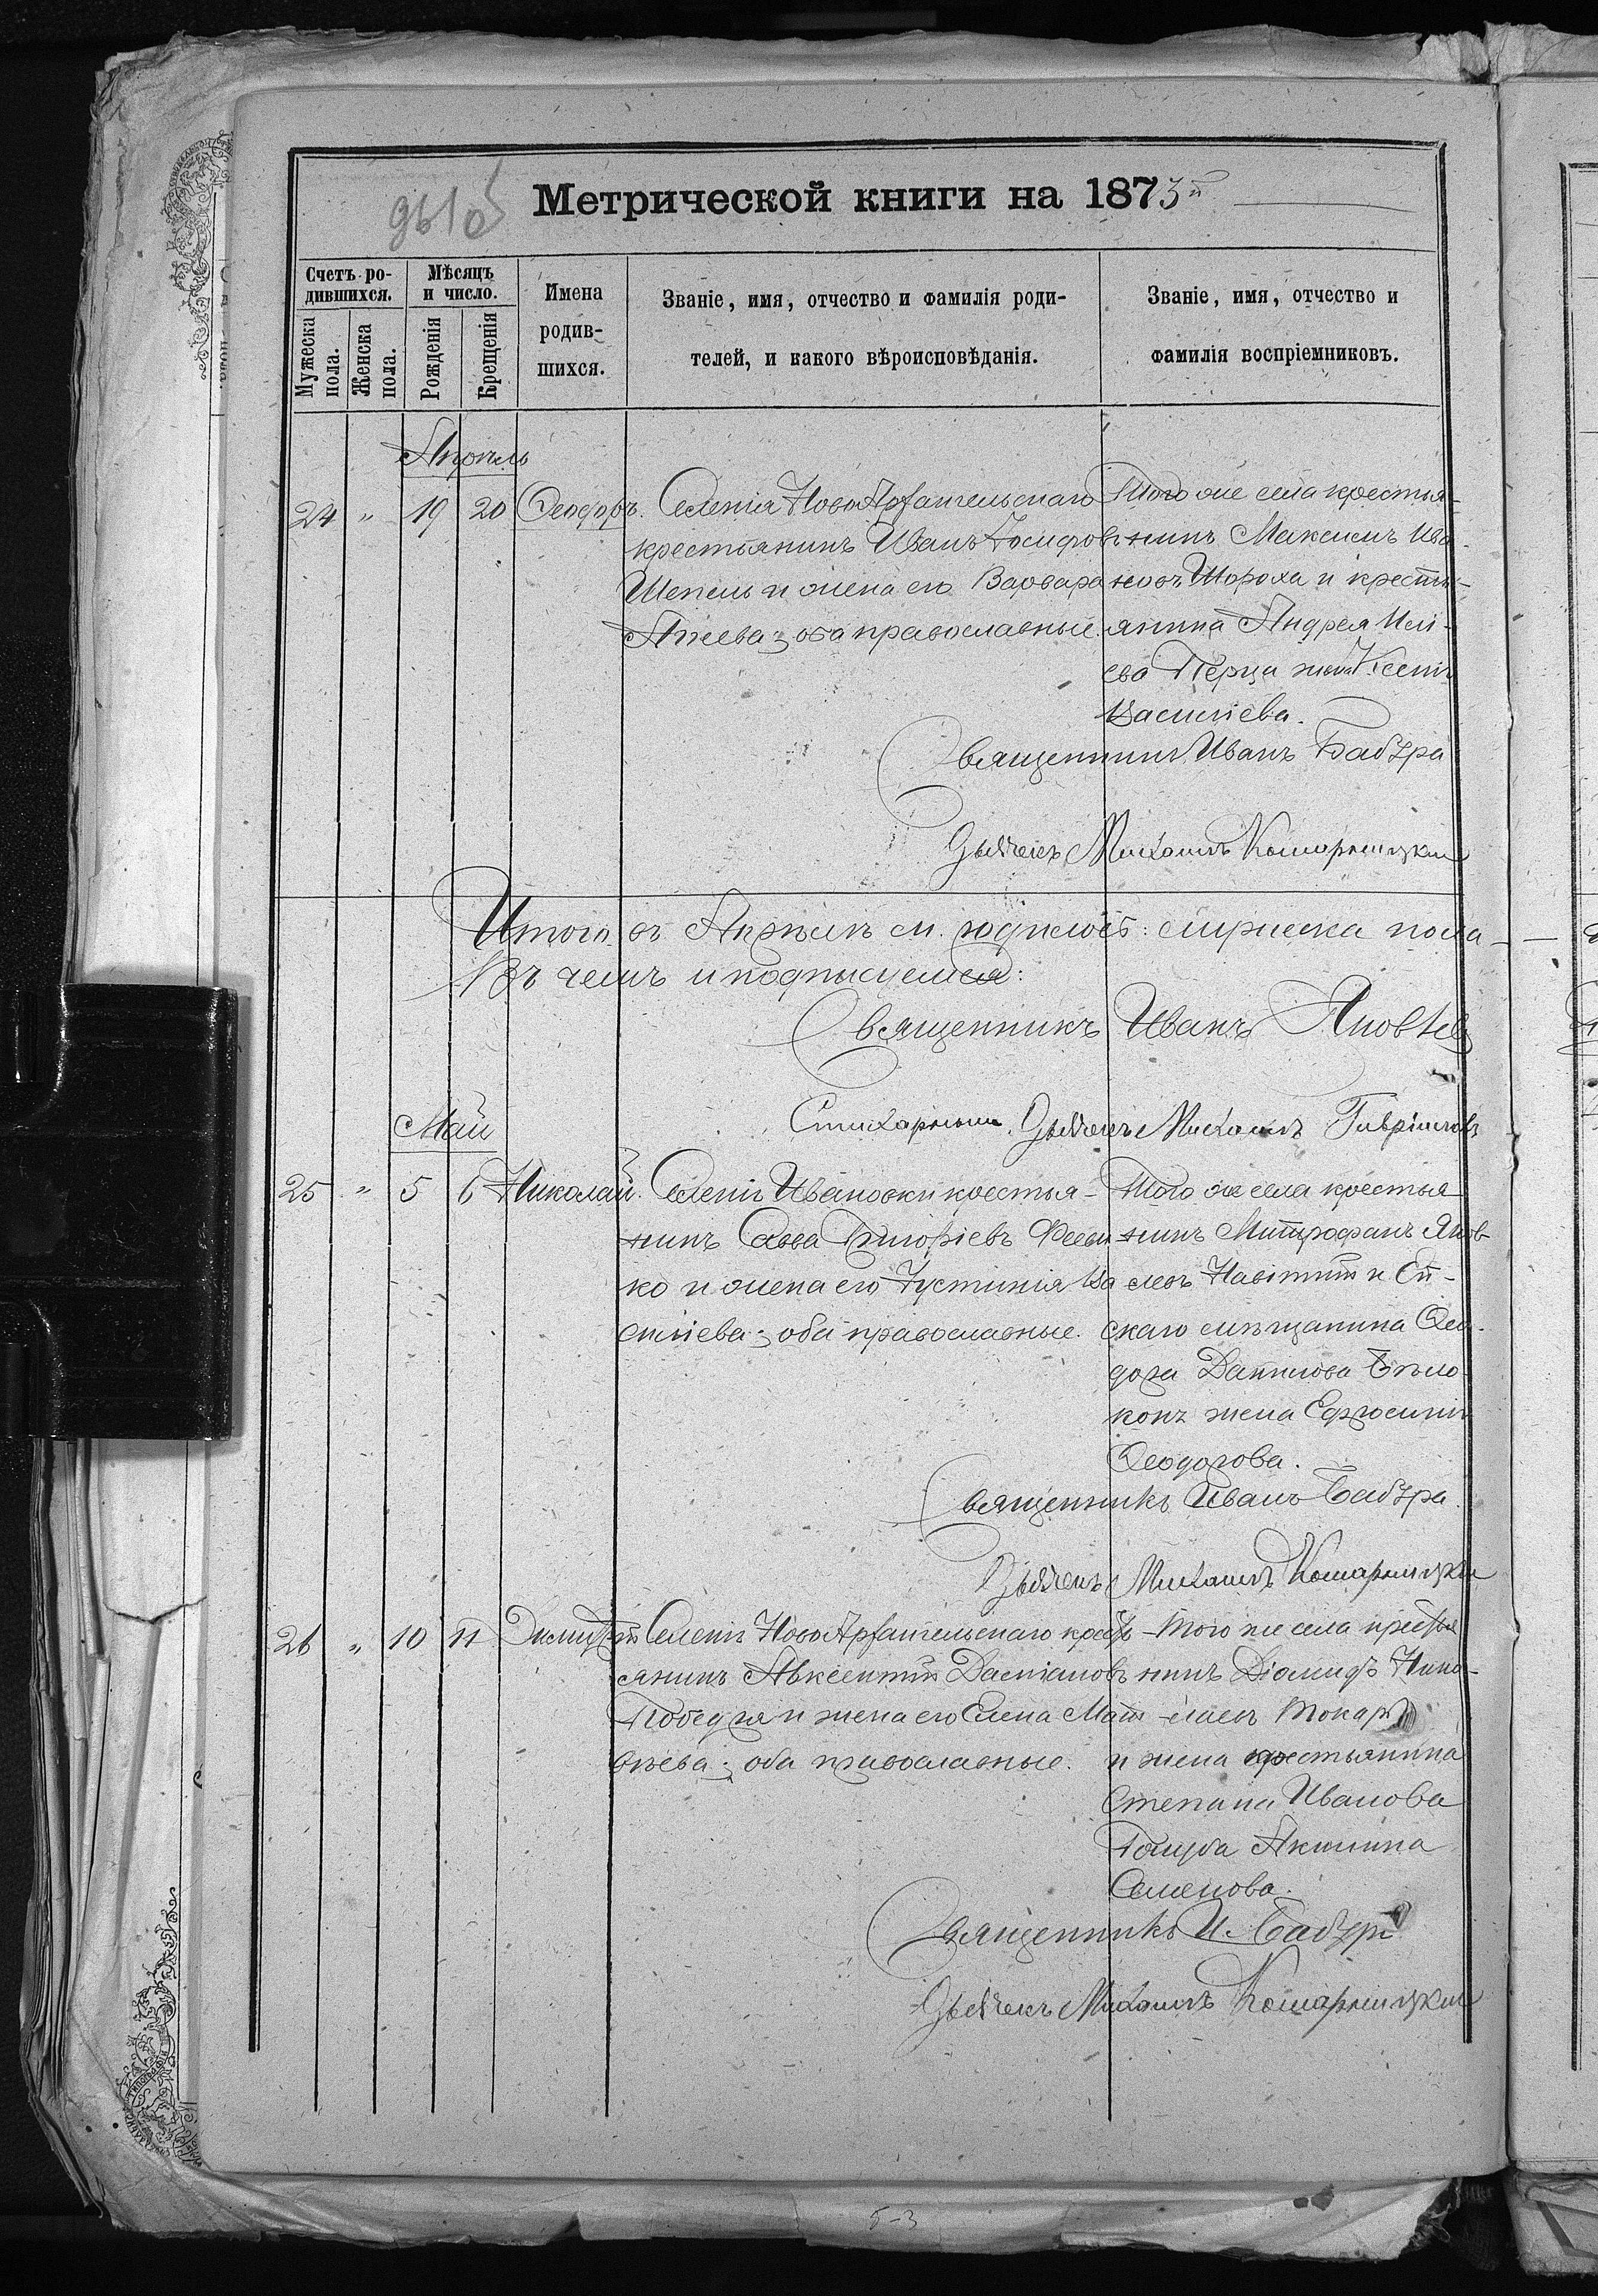 Метрической книги на 1873й
Счетъ ро-
дившихся.
Мужеска пола.
Женска пола.
Мѣсяцъ
и число.
Рожденія
Крещенія
Имена
родив-
шихся.
Званіе, имя, отчество и фамилія роди-
телей, и какого вѣроисповѣданія.
Званіе, имя, отчество и
фамилія воспріемниковъ.
Апрѣль
24 " 19 20 Ѳеодоръ.
Селенія НовоАрхангельскаго
крестьянинъ Иванъ Іосифовъ
Шепель и жена его Варвара
оба православные.
Того же села крестья-
нинъ Максимъ Ива-
новъ Шороха и кресть-
янина Андрея Илі-
ева Перца жена Ксенія
Василіева.
Священникъ Иванъ Бабура
Дьячекъ Михаилъ Комарницкій
Итого въ Апрѣлѣ м. родилось: мужеска пола
Въ чемъ и подписуемся:
Священникъ Иванъ Яковлев
Стихарный Дьячекъ Михаилъ Гавріиловъ
Май
25 " 5 6 Николай.
Селенія Ивановки крестья-
нинъ Савва Григоріевъ
ко и жена его Іустинія Ва
силіева; оба православные.
Того же села крестья
нинъ Митрофанъ Яков-
левъ
скаго мѣщанина Ѳео-
дора Данилова Бѣло-
конь жена Ефросинія
Ѳеодорова.
Священникъ Иванъ Бабура
Дьячекъ Михаилъ Комарницкій
26 " 10 11
Селенія НовоАрхангельскаго крест-
янинъ Авксентій Даміановъ
и жена его Елена Мат-
вѣева; оба православные.
Того же села крестья
нинъ Діомидъ Нико-
лаевъ Токарь
и жена крестьянина
Степана Иванова
Голуба Акилина
Семенова.
Священникъ И. Бабура
Дьячекъ Михаилъ Комарницкій
5-3